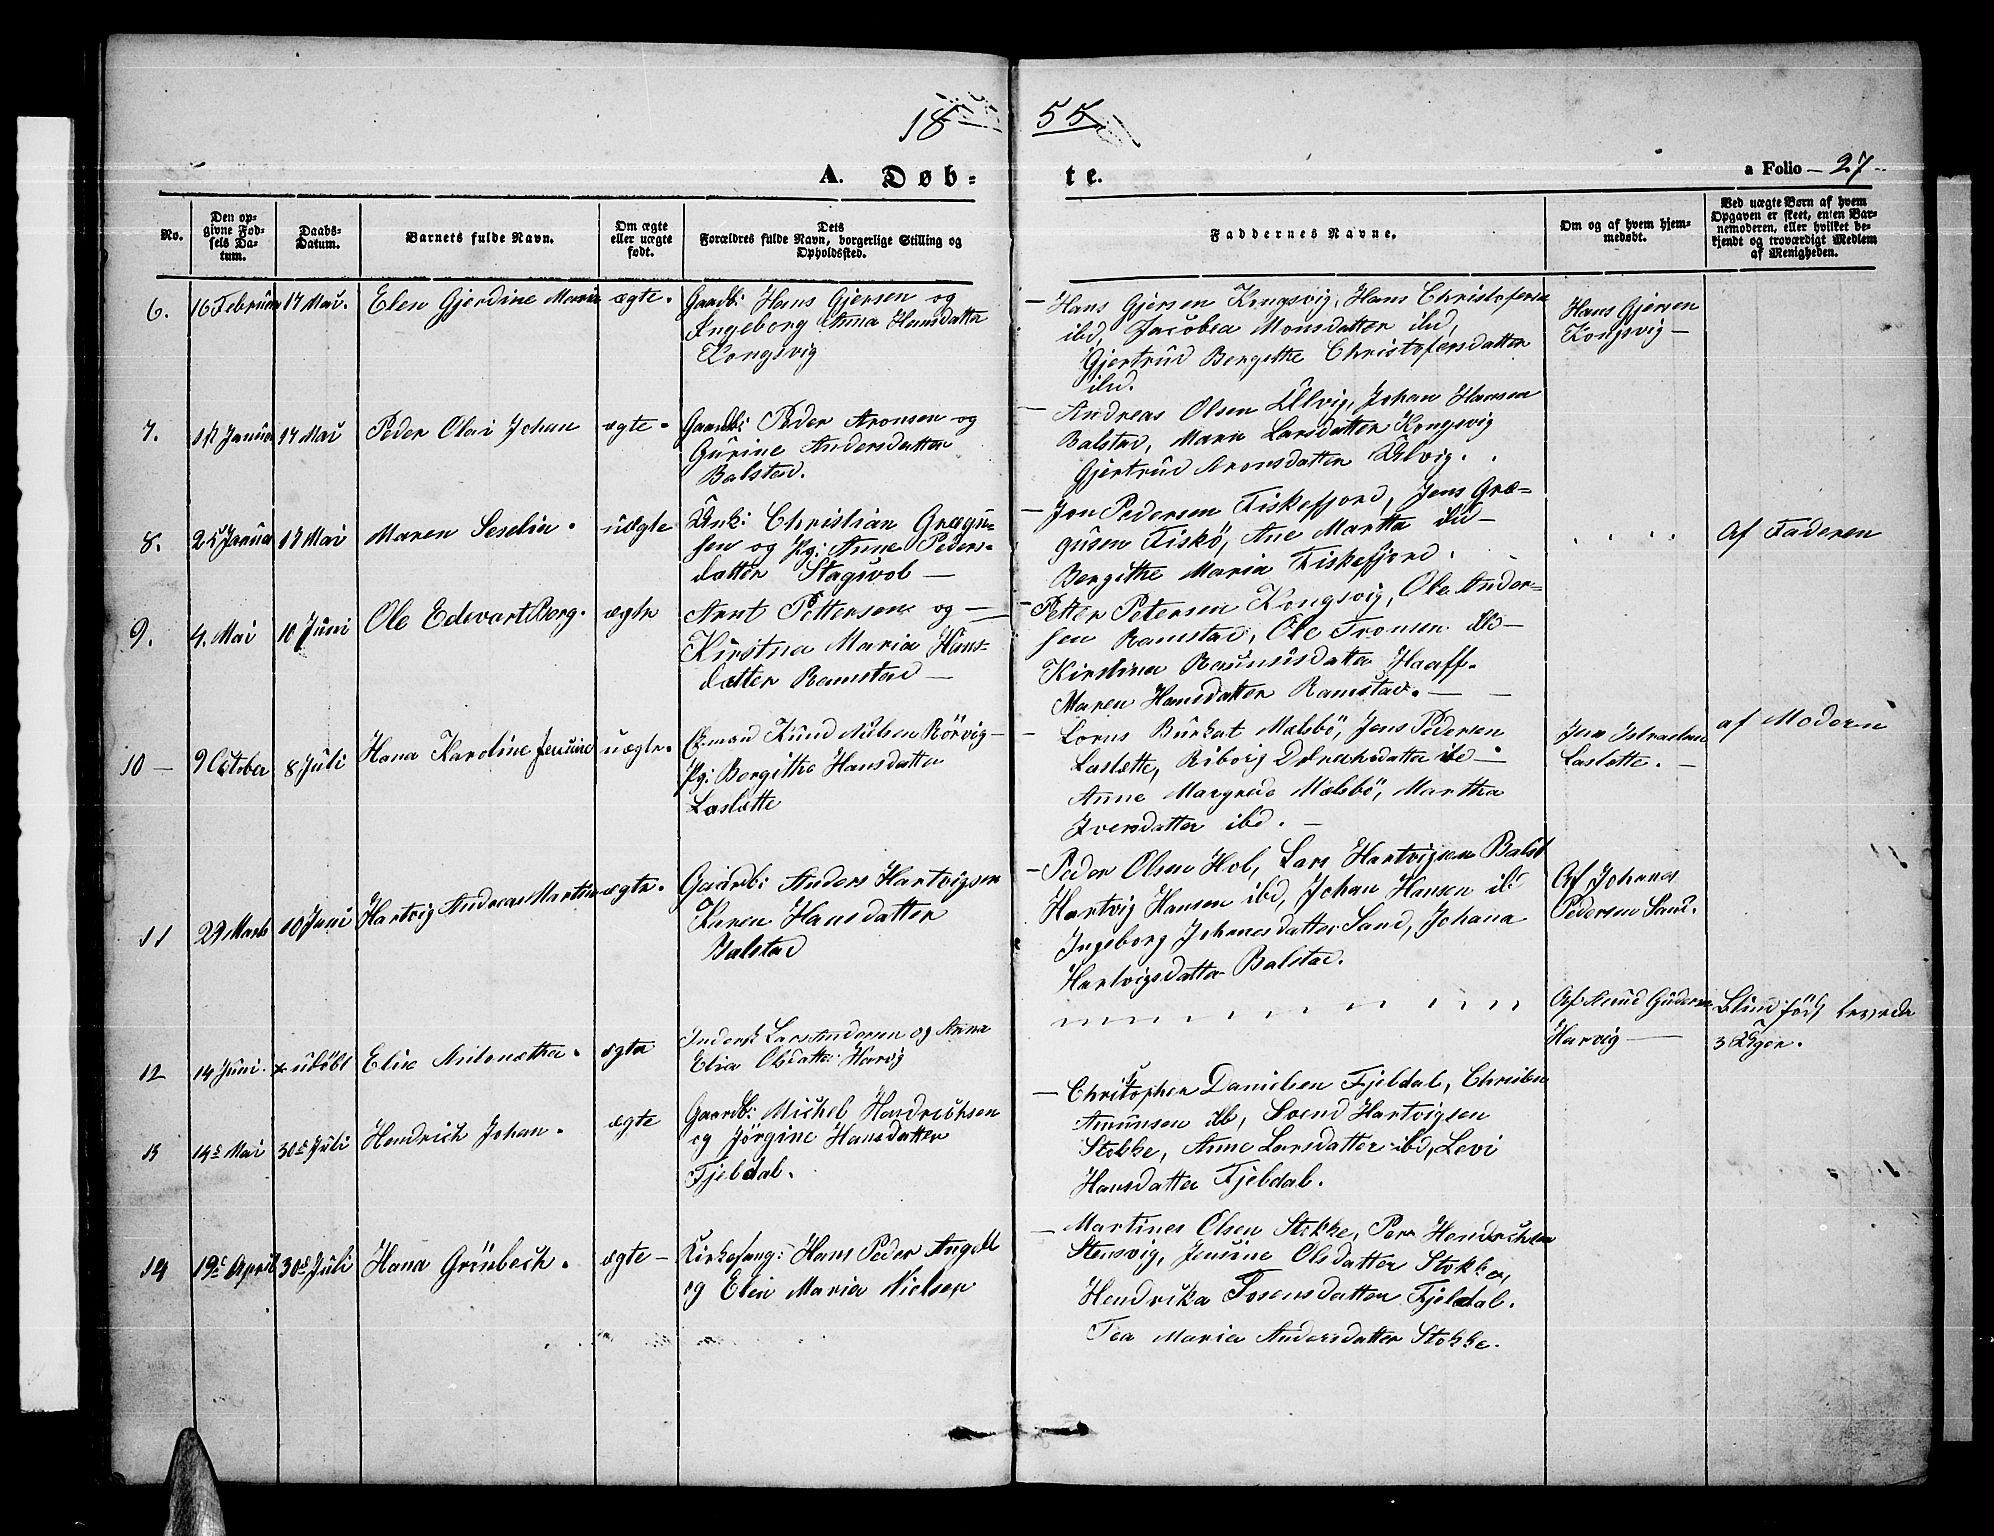 18 55
A. Døb-
te.
a Folio 27
No.
Den op-
givne Fød-
sels Da-
tum.
Daabs-
Datum.
Barnets fulde Navn.
Om ægte
eller uægte
født.
Dets
Forældres fulde Navn, borgerlige Stilling og
Opholdssted.
Faddernes Navne.
Om og af hvem hjem-
medøbt.
Ved uægte Børn af hvem
Opgaven er skeet, enten Bar-
nemoderen, eller hvilket be-
kjendt og troværdigt Medlem
af Menigheden.
6. 16 Februar 17 Mai. Elen Gjerdine Maria ægte.
Gaardb: Hans Gjersen og
Ingeborg Anna Hansdatter
Kongsvig
Hans Gjersen Kongsvig, Hans Christofersen
ibd, Jacobea Monsdatter ibd,
Gjertrud Bergithe Christofersdatter
ibd.
Hans Gjersen
Kongsvig
7. Januar 17 Mai Peder Olai Johan ægte.
Gaardb: Peder Aronsen og
Gurine Andersdatter
Balstad.
Andreas Olsen Ulvig, Johan Hansen
Balstad, Maria Larsdatter Kongsvig
Gjertrud Aronsdatter Ulvig.
8. 25 Januar 17 Mai Maren Seselia. uægte
Unk: Christian Grægu-
sen og Pg: Anne Peders-
datter Stagsvol
Jon Pedersen Fiskefjord, Jens Græ-
gusen Fiskø, Ane Martha ibd
Bergithe Maria Fiskefjord.
Af Faderen
9. 4. Mai 10 Juni Ole Edevart Borg. ægte
Arnt Pettersen og
Kirstna Maria Hans-
datter Ramstad
Petter Petersen Kongsvig, Ole Ander-
sen Ramstad, Ole Tronsen ibd
Kirstina Haaff.
Maren Hansdatter Ramstad.
10 9 October 8 Juli Hana Karoline Jensine uægte.
Knud Nilsen Rørvig
Pg: Bergithe Hansdatter
Laslette
Lorns Burkat Melsbö, Jens Pedersen
Laslette, Riborg ibd
Anne Margrete Melsbö, Martha
Iversdatter ibd.
Jens Istraelsen
Laslette.
af Modern
11 29 Marts 10 Juni Hartvig Andreas Martin ægte.
Gaardb: Anders Hartvigsen
Karen Hansdatter
Balstad
Peder Olsen Hol, Lars Hartvigsen Balst
Hartvig Hansen ibd, Johan Hansen ibd
Ingeborg Johanesdatter Sand, Johana
Hartvigsdatter Balstad.
Af Johanes
Pedersen Sand.
12 14 Juni. udöbt Elise ægte
Inderst Lars Andersen og Anna
Elisa Olsdatter Harvig
Af Knud
Harvig
Blind født levede
3 Uger.
13 14de Mai 30de Juli Hendrich Johan. ægte
Gaardb: Michel Hendrichsen
og Jörgine Hansdatter
Fjeldal.
Christopher Danielsen Fjeldal, Christen
Amunsen ibd, Svend Hartvigsen
Stokke, Anne Larsdatter ibd, Levi
Hansdatter Fjeldal.
14 19de April 30de Juli Hana Grönbech. ægte
Kirkesang: Hans Peder Angell
og Elen Maria Nielsen
Martines Olsen Stokke, Per Hendrichsen
Stensvig, Jensine Olsdatter Stokke,
Hendrika Tosensdatter Fjeldal.
Tea Maria Andersdatter Stokke.